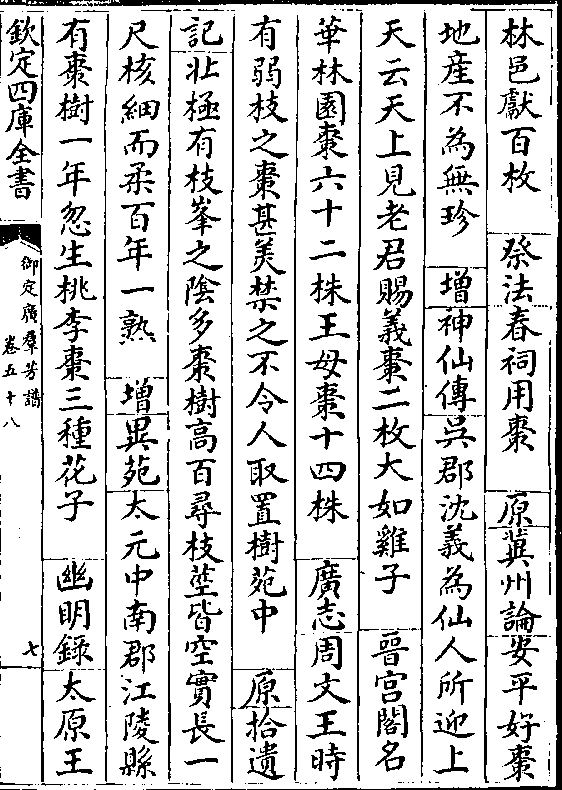 林邑獻百枚　祭法春祠用棗　原冀州論安平好棗
地産不為無珍　增神仙傳吳郡沈義為仙人所迎上
天云天上見老君賜義棗二枚大如雞子　晉宮閣名
華林園棗六十二株王母棗十四株　廣志周文王時
有弱枝之棗甚美禁之不令人取置樹苑中　原拾遺
記北極有枝峯之陰多棗樹高百尋枝莖皆空實長一
尺核細而柔百年一熟　增異苑太元中南郡江陵縣
有棗樹一年忽生桃李棗三種花子　幽明錄太原王
欽定四庫全書
御定廣羣芳譜
卷五十八
七